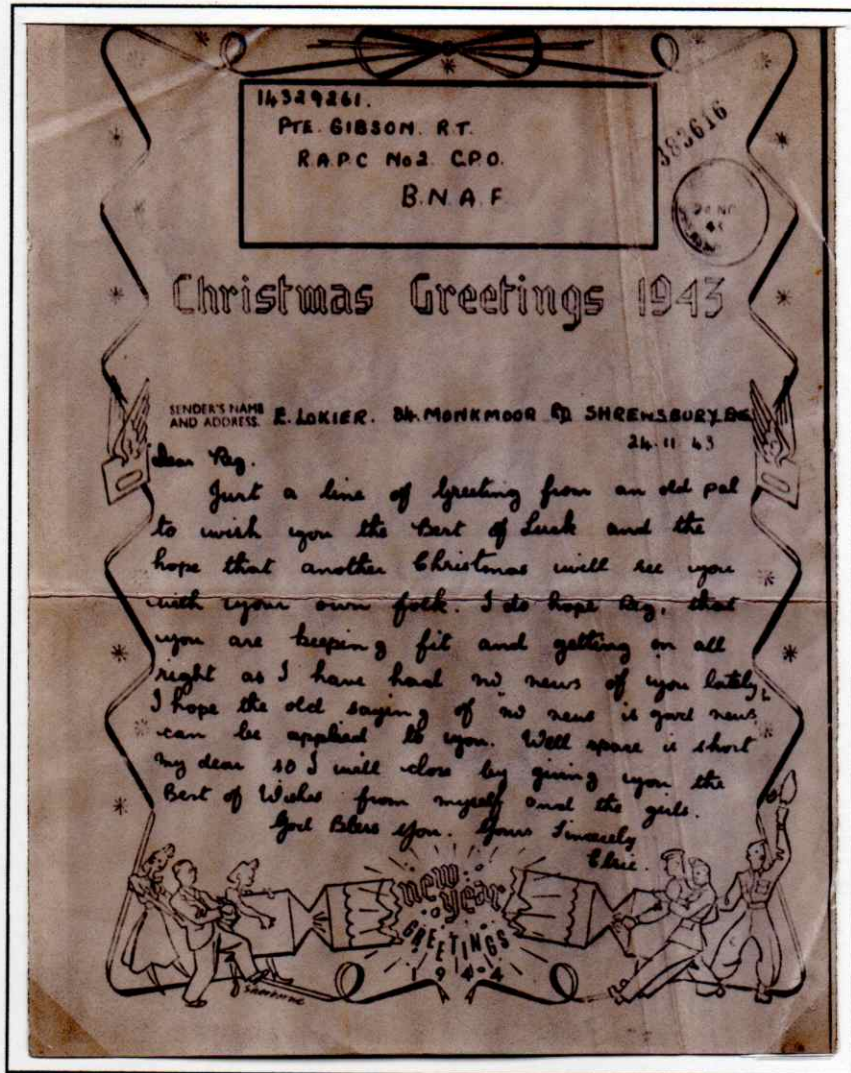 14329261.
PTE. GIBSON. R.T.
R.A.P.C No2. C.P.O.
B.N.A.F
383616
43
Christmas Greetings 1943
SENDER'S NAME
AND ADDRESS. E. LOKIER. 84. MONKMOOR RD SHREWSBURY
24.11.43
Dear Reg.
Just a line of Greeting from an old pal
to wish you the Best of Luck and the
hope that another Christmas will see you
with your own folk. I do hope Reg, that
you are keeping fit and getting on all
right as I have had no news of you lately,
I hope the old saying of "no news is good news
can be applied to you. Well space is short
my dear so I will close by giving you the
Best of Wishes from myself and the girls.
God Bless You. Yours Sincerely
Elsie.
new
year
GREETINGS
1944